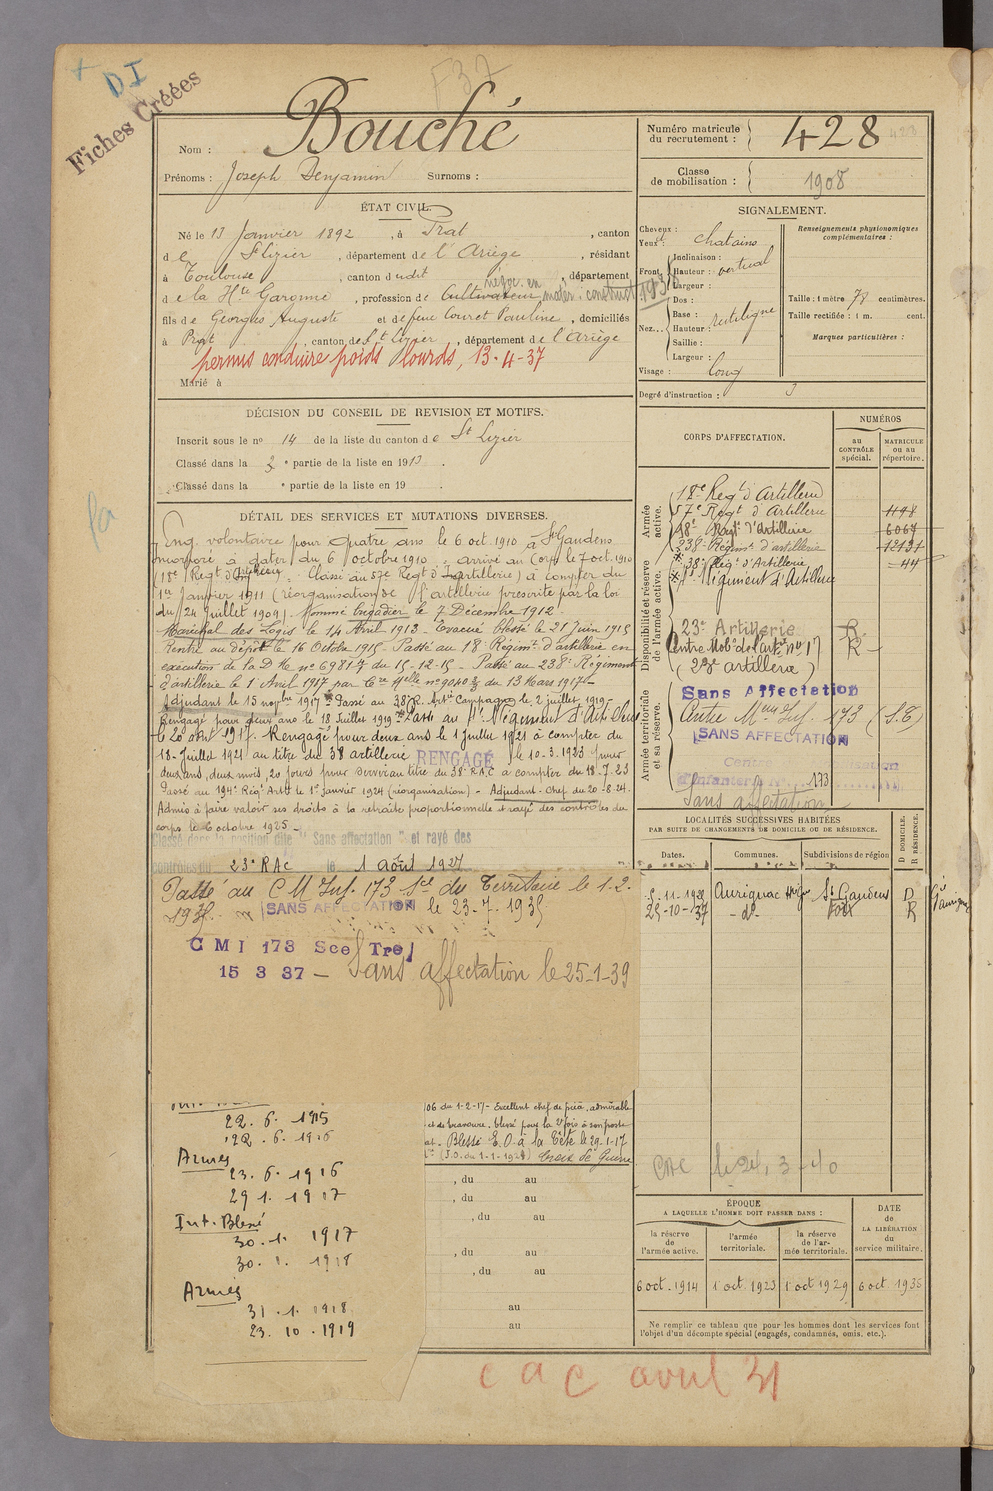 + DI
Fiches Créées
F37
Nom : Bouché
Prénoms : Joseph Benjamin Surnoms :
Numéro matricule du recrutement : 428
Classe de mobilisation : 1908
ÉTAT CIVIL.
Né le 13 Janvier 1892, à Prat, canton
de St Lizier, département de l'Ariège, résidant
à Toulouse, canton dudit, département
de la Hte Garonne, profession de Cultivateur
fils de Georges Auguste et de feue Couret Pauline, domiciliés
à Prat, canton de St Lizier, département de l'Ariège
permis conduire poids lourds, 13-4-37
Marié à
SIGNALEMENT.
Cheveux :
Yeux : chatains
Front. Inclinaison :
Hauteur : vertical
Largeur :
Nez... Dos :
Base : rectiligne
Hauteur :
Saillie :
Largeur :
Visage : long
Renseignements physionomiques complémentaires :
Taille : 1 mètre 78 centimètres.
Taille rectifiée : 1 m. cent.
Marques particulières :
Degré d'instruction : 3
DÉCISION DU CONSEIL DE REVISION ET MOTIFS.
Inscrit sous le no 14 de la liste du canton de St Lizier
Classé dans la 3 e partie de la liste en 1913.
Classé dans la e partie de la liste en 19 .
DÉTAIL DES SERVICES ET MUTATIONS DIVERSES.
Eng. volontaire pour quatre ans le 6 oct. 1910 à St Gaudens
incorporé à dater du 6 octobre 1910 arrivé au Corps le 7 oct. 1910
(18e Regt d'Artillerie. Classé au 57e Regt d'artillerie) à compter du
1er Janvier 1911 (réorganisation de l'artillerie prescrite par la loi
du 24 Juillet 1909). Nommé brigadier le 7 Décembre 1912.
Maréchal des Logis le 14 Avril 1913. Evacué blessé le 21 Juin 1915
Rentré au dépôt le 16 Octobre 1915. Passé au 18e Régimt d'artillerie en
exécution de la D M no 6981-7 du 15-12-15. Passé au 238e Régiment
d'artillerie le 1er Avril 1917 par Cre Mlle no 9040 3/3 du 13 Mars 1917
Adjudant le 15 novbre 1917 Passé au 38e R. Artie Campagne le 2 juillet 1919
Rengagé pour deux ans le 18 Juillet 1919 Passé au Régiment d'Artillerie
le 20 août 1917. Rengagé pour deux ans le 1 Juillet 1921 à compter du
18 Juillet 1921 au titre du 38 artillerie RENGAGÉ le 10-3-1923 pour
deux ans, deux mois, 20 jours pour servir au titre du 38e R.A.C à compter du 18-7-23
Passé au 194e Régt Artie le 1er janvier 1924 (réorganisation) - Adjudant-Chef du 20-8-24.
Admis à faire valoir ses droits à la retraite proportionnelle et rayé des contrôles du
corps le 6 octobre 1925
Classé dans la position dite " Sans affectation " et rayé des
contrôles du 23e RAC le 1 Août 1927
Passé au C M Inf. 173 Sce du Territoire le 1.2.
SANS AFFECTATION le 23-7-1935
C M I 173 Sce Tre
15 3 37 - Sans affectation le 25-1-39
22. 6. 1915
22. 6. 1916
Armées
23. 6. 1916
29 1. 1917
Int. Blessé
30. 1. 1917
30. 1. 1918
Armées
31. 1. 1918
23. 10. 1919
06 du 1-2-17 - Excellent chef de pièce, admirable
et de bravoure. blessé pour la 2e fois à son poste
Blessé E.O. à la tête le 29-1-17
Croix de Guerre
, du au
, du au
, du au
, du au
, du au
au
au
CORPS D'AFFECTATION.
NUMÉROS
au CONTRÔLE spécial.
MATRICULE ou au répertoire.
Armée active.
Disponibilité et réserve de l'armée active.
Armée territoriale et sa réserve.
18e Regt d'Artillerie
57e Regt d'Artillerie 1198
18e Regt d'Artillerie 6067
238e Régimt d'artillerie 12431
38e Régt d'Artillerie 44
Régiment d'Artillerie
23e Artillerie R
Centre Mob. de l'art. no 17 R
(23e artillerie)
Sans Affectation
Centre Mon Inf. 173 (S.T)
SANS AFFECTATION
Centre Mobilisation
d'Infanterie No 173
Sans affectation
LOCALITÉS SUCCESSIVES HABITÉES
PAR SUITE DE CHANGEMENTS DE DOMICILE OU DE RÉSIDENCE.
Dates. Communes. Subdivisions de région D DOMICILE. R RÉSIDENCE.
5-11-1928 Aurignac St Gaudens D
25-10-37 - do - Foix R
CAC le 24. 3-40
ÉPOQUE
A LAQUELLE L'HOMME DOIT PASSER DANS :
la réserve de l'armée active.
l'armée territoriale.
la réserve de l'armée territoriale.
DATE de LA LIBÉRATION du service militaire.
6 oct. 1914 1er oct. 1923 1er oct 1929 6 oct. 1935
Ne remplir ce tableau que pour les hommes dont les services font
l'objet d'un décompte spécial (engagés, condamnés, omis, etc.).
C a C avril 31